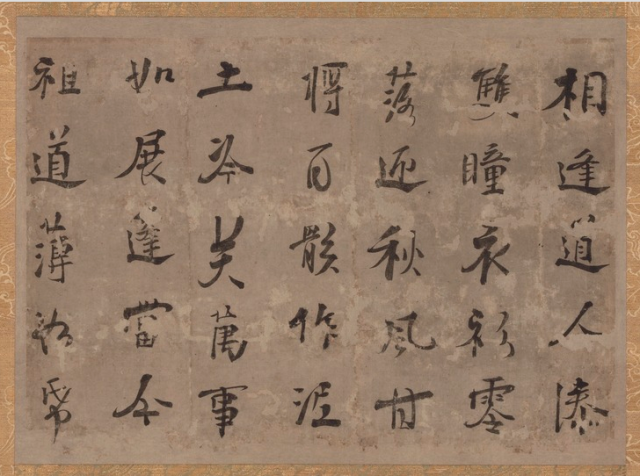 相逢道人漆
雙瞳衣衫零
落迎秋風甘
將百骸作泥
土冷笑萬事
如展蓬當今
祖道薄帋